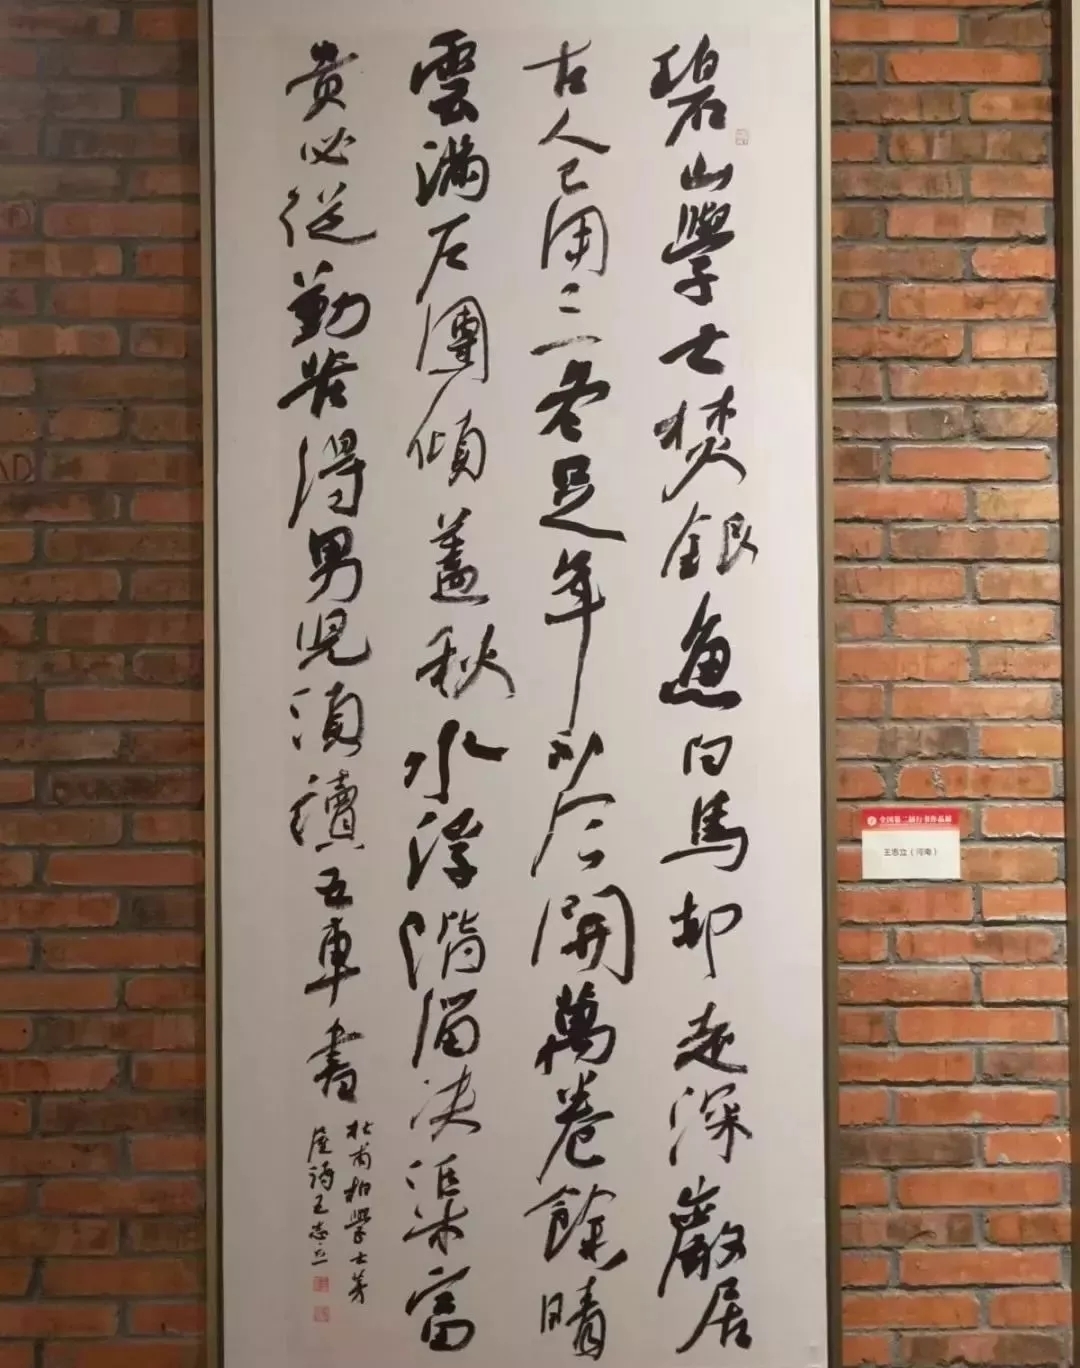 碧山學士焚銀魚白馬却走深巖居
古人已用三冬足年少今開萬卷餘晴
雲滿戶團傾蓋秋水浮階溜决渠富
貴必從勤苦得男兒須讀五車書
杜甫柏學士茅
屋詩王志立
全国第二届行书作品展
王志立（河南）